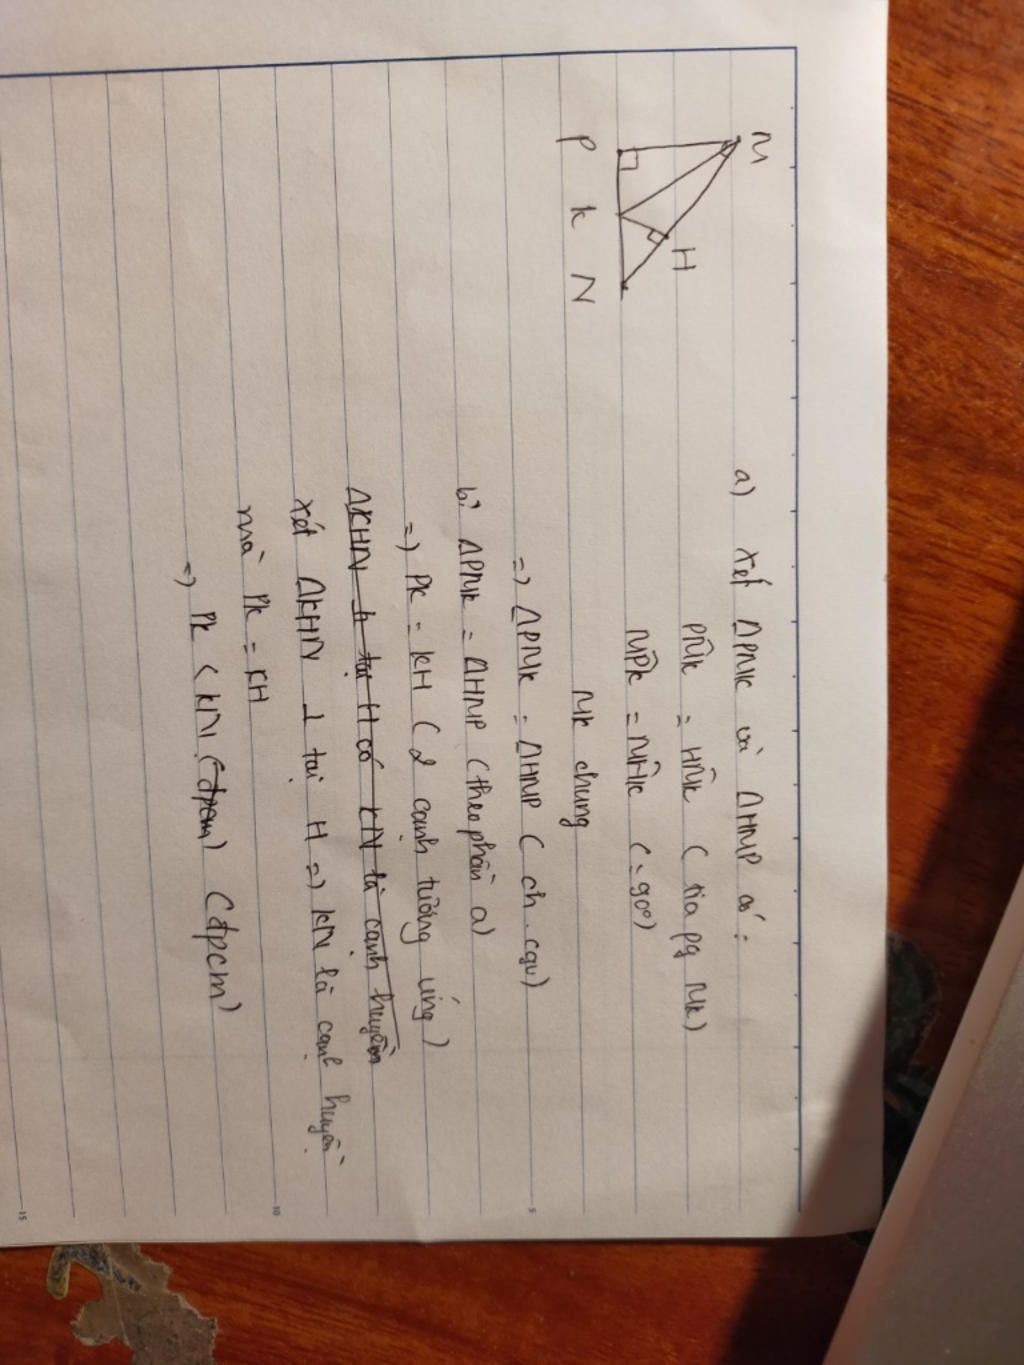 M
H
P K N
a) Xét ΔPMK và ΔHMP có :
PM̂K = HM̂K ( tia pg MK)
MP̂K = MĤK ( = 90°)
MK chung
=> ΔPMK = ΔHMP ( ch . cgv)
b) ΔPMK = ΔHMP (theo phần a)
=> PK = KH ( 2 cạnh tương ứng )
ΔKHN ⊥ tại H có KN là cạnh huyền
Xét ΔKHN ⊥ tại H => KN là cạnh huyền
mà PK = KH
=> PK < KN (đpcm) (đpcm)
5
10
15